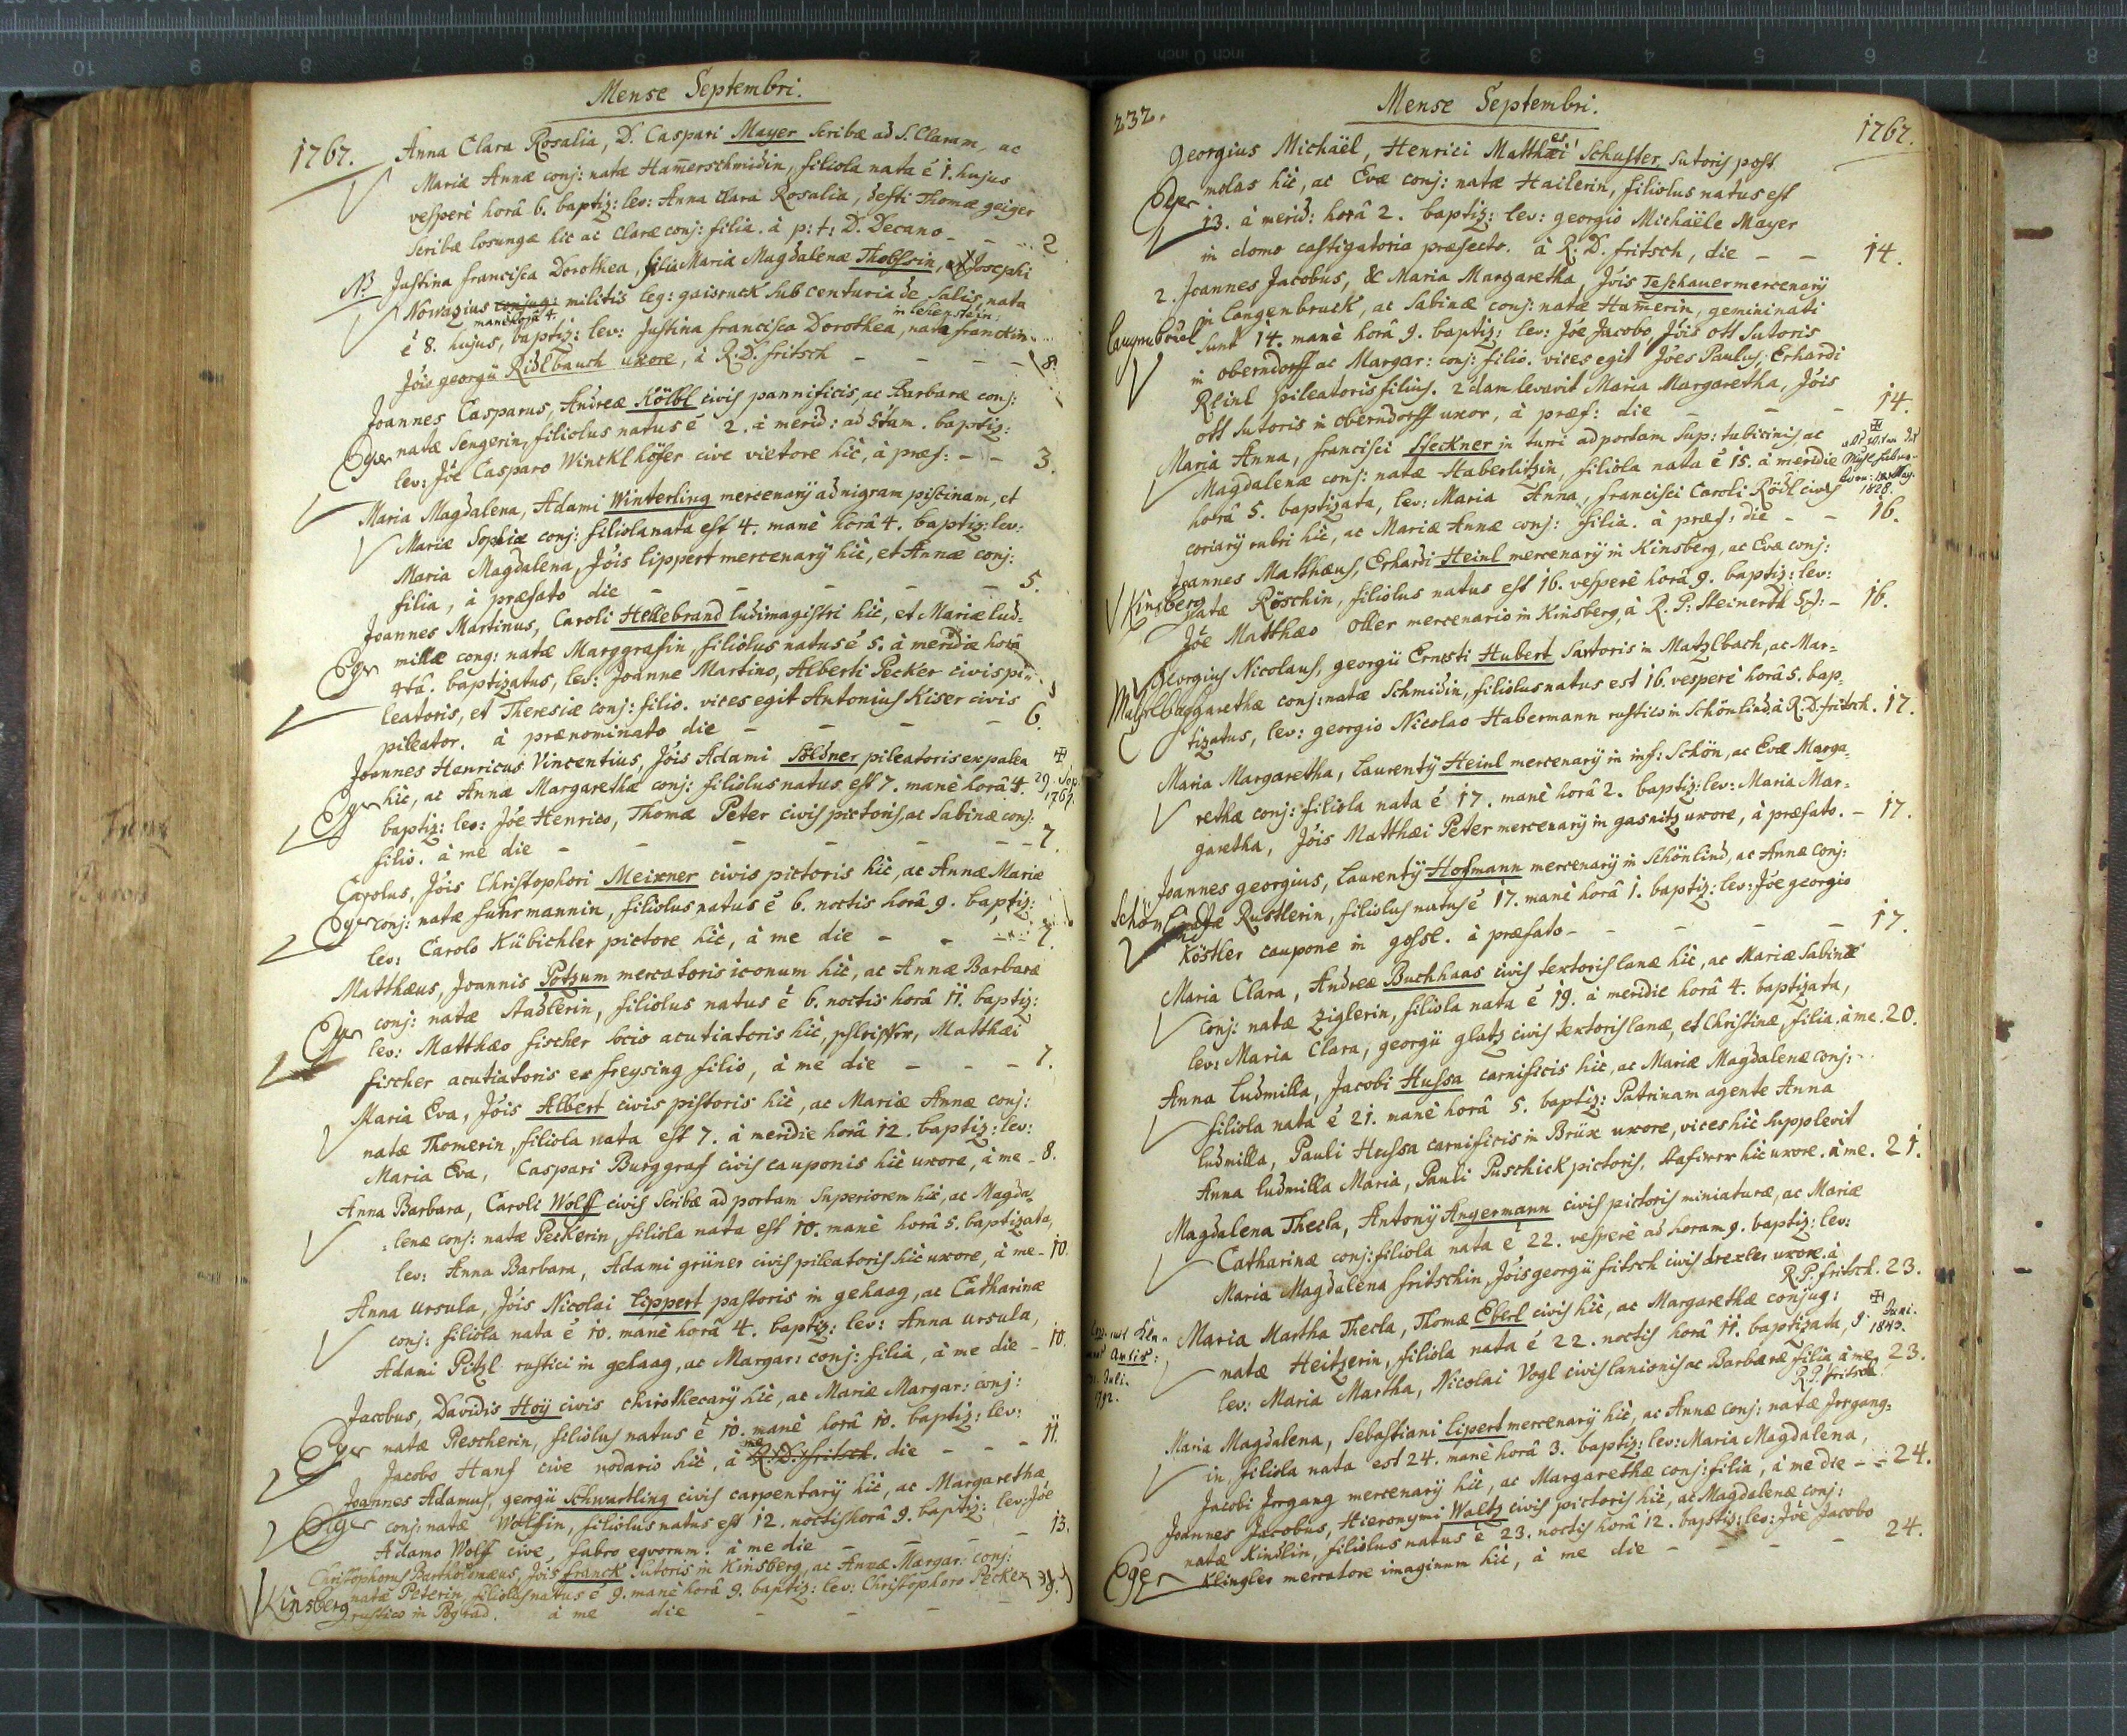 Mense Septembri.
1767. Anna Clara Rosalia, D. Caspari Mayer Scribæ ad S. Claram, ac
Mariæ Annæ conj: natæ Ham̄erschmidin, filiola nata é 1. hujus
vesperè horâ 6. baptiz: lev: Anna Clara Rosalia, Thomæ geiger
Scribæ losungæ hic ac Claræ conj: filia. à p: t: D. Decano - - 2
NB Justina francisca Dorothea, filia Mariæ Magdalenæ, Josephi
Nowazius conjug: militis leg: gaisruck sub centuria de Salis, nata
manè horâ 4.
é 8. hujus, baptiz: lev: Justina francisca Dorothea, nata franckin
Jois georgii Ridlbauch uxore, à R. D. fritsch - - - - 8.
Joannes Casparus, Andreæ Kölbl civis pannificis, ac Barbaræ conj:
Eger natæ Sengerin, filiolus natus é 2. à merid: ad 5tam. baptiz:
lev: Jõe Casparo Wincklhöfer cive vietore hic, à præf: - - 3.
Maria Magdalena, Adami Winterling mercenarÿ ad nigram piscinam, et
Mariæ Sophiæ conj: filiola nata est 4. manè horâ 4. baptiz: lev:
Maria Magdalena, Jõis lippert mercenarÿ hic, et Annæ conj:
filia, à præfato die - - - - - 5.
Joannes Martinus, Caroli Hellebrand ludimagistri hic, et Mariæ lud=
Eger millæ conj: natæ Marggrafin, filiolus natus é 5. à meridie horâ
4tâ. baptizatus, lev: Joanne Martino, Alberti Pecker civis pi=
leatoris, et Theresiæ conj: filio. vices egit Antonius Kiser civis
pileator. à prænominato die - - - - 6.
Joannes Henricus Vincentius, Jõis Adami Söldner pileatoris ex palea
Eger hic, ac Annæ Margarethæ conj: filiolus natus est 7. manè horâ 4. ✠ 29. Sep. 1767.
baptiz: lev: Jõe Henrico, Thomæ Peter civis pictoris, ac Sabinæ conj:
filio. à me die - - - - - 7.
Carolus, Jõis Christophori Meixner civis pictoris hic, ac Annæ Mariæ
Eger conj: natæ fuhrmannin, filiolus natus é 6. noctis horâ 9. baptiz:
lev: Carolo Kübichler pictore hic, à me die - - - 7.
Matthæus, Joannis Potzum mercatoris iconum hic, ac Annæ Barbaræ
Eger conj: natæ Stadlerin, filiolus natus é 6. noctis horâ 11. baptiz:
lev: Matthæo fischer socio acutiatoris hic, Matthæi
fischer acutiatoris ex freysing filio, à me die - - - 7.
Maria Eva, Jõis Albert civis pistoris hic, ac Mariæ Annæ conj:
natæ Thomerin, filiola nata est 7. à meridie horâ 12. baptiz: lev:
Maria Eva, Caspari Burggraf civis cauponis hic uxore, à me - 8.
Anna Barbara, Caroli Wolff civis Scribæ ad portam Superiorem hic, ac Magda=
lenæ conj: natæ Peckerin, filiola nata est 10. manè horâ 5. baptizata,
lev: Anna Barbara, Adami grüner civis pileatoris hic uxore, à me - 10.
Anna Ursula, Jõis Nicolai lippert pastoris in gehaag, ac Catharinæ
conj: filiola nata é 10. manè horâ 4. baptiz: lev: Anna Ursula,
Adami Pitzl rustici in gehaag, ac Margar: conj: filia, à me die - 10.
Jacobus, Davidis Hoÿ civis chirothecarÿ hic, ac Mariæ Margar: conj:
Eger natæ Rescherin, filiolus natus é 10. manè horâ 10. baptiz: lev:
Jacobo Hanf cive nodario hic, à me R. D. fritsch. die - - - 11.
Joannes Adamus, georgii Schwartling civis carpentarÿ hic, ac Margarethæ
Eger conj: natæ Wolfin, filiolus natus est 12. noctis horâ 9. baptiz: lev: Jõe
Adamo Wolf cive fabro eqvorum. à me die - - - 13.
Christophorus Bartholomæus, Jõis franck Sutoris in Kinsberg, ac Annæ Margar: conj:
Kinsberg natæ Peterin, filiolus natus é 9. manè horâ 9. baptiz: lev: Christophoro Pecker
rustico in Pograd. à me die - - - -
232. Mense Septembri. 1767.
Georgius Michaël, Henrici Matthæi Schuster Sutoris post
Eger molas hic, ac Evæ conj: natæ Hailerin, filiolus natus est
13. à merid: horâ 2. baptiz: lev: georgio Michaële Mayer
in domo castigatoria præfecto. à R. D. fritsch, die - - 14.
2. Joannes Jacobus, & Maria Margaretha, Jõis Teschauer mercenarÿ
in Langenbruck, ac Sabinæ conj: natæ Ham̄erin, gemini nati
sunt 14. manè horâ 9. baptiz: lev: Jõe Jacobo, Jõis ott Sutoris
in oberndorff ac Margar: conj: filio. vices egit Jões Paulus, Erhardi
Reinl pileatoris filius. 2dam levavit Maria Margaretha, Jõis
ott Sutoris in oberndorff uxor, à præf: die - - - 14.
Maria Anna, francisci Steckner in turri ad portam Sup: tubicinis, ac
Magdalenæ conj: natæ Haberlitzin, filiola nata é 15. à meridie
horâ 5. baptizata, lev: Maria Anna, francisci Caroli Rödl civis 1828.
coriarÿ rubri hic, ac Mariæ Annæ conj: filia. à præf: die - - 16.
Joannes Matthæus, Erhardi Heinl mercenarÿ in Kinsberg, ac Evæ conj:
Kinsberg natæ Röschin, filiolus natus est 16. vesperè horâ 9. baptiz: lev:
Jõe Matthæo oller mercenario in Kinsberg, à R. P. Steinerth S: J: - 16.
Georgius Nicolaus, georgii Ernesti Hubert Sartoris in Matzlbach, ac Mar=
Matzlbach garethæ conj: natæ Schmidin, filiolus natus est 16. vesperè horâ 5. bap=
tizatus, lev: georgio Nicolao Habermann rustico in Schönlind, à R. D. fritsch. 17.
Maria Margaretha, Laurentÿ Heinl mercenarÿ in inf: Schön, ac Evæ Marga=
rethæ conj: filiola nata é 17. manè horâ 2. baptiz: lev: Maria Mar=
garetha, Jõis Matthæi Peter mercenarÿ in gasnitz uxore, à præfato. - 17.
Joannes georgius, Laurentÿ Hofmann mercenarÿ in Schönlind, ac Annæ conj:
Schönlind natæ Rustlerin, filiolus natus é 17. manè horâ 1. baptiz: lev: Jõe georgio
Köstler caupone in gossl. à præfato - - - - - 17.
Maria Clara, Andreæ Buchhaas civis textoris lanæ hic, ac Mariæ Sabinæ
conj: natæ Ziglerin, filiola nata é 19. à meridie horâ 4. baptizata,
lev: Maria Clara, georgii glatz civis textoris lanæ, et Christinæ, filia. à me. 20.
Anna Ludmilla, Jacobi Hussa carnificis hic, ac Mariæ Magdalenæ conj:
filiola nata é 21. manè horâ 5. baptiz: Patrinam agente Anna
Ludmilla, Pauli Hussa carnificis in Brüx uxore, vices hic supplevit
Anna Ludmilla Maria, Pauli Puschick pictoris, hic uxore. à me. 21.
Magdalena Thecla, Antonÿ Angermann civis pictoris miniaturæ, ac Mariæ
Catharinæ conj: filiola nata é 22. vesperè ad horam 9. baptiz: lev:
Maria Magdalena fritschin, Jõis georgii fritsch civis drexler uxore. à
R. P. fritsch. 23.
Maria Martha Thecla, Thomæ Eberl civis hic, ac Margarethæ conjug: ✠
natæ Heitzerin, filiola nata é 22. noctis horâ 11. baptizata, 9 Juni. 1843.
lev: Maria Martha, Nicolai Vogl civis lanionis ac Barbaræ filia, à me 23.
R. P. fritsch
Juli. 1792.
Maria Magdalena, Sebastiani lipert mercenarÿ hic, ac Annæ conj: natæ Jrrgang=
in, filiola nata est 24. manè horâ 3. baptiz: lev: Maria Magdalena,
Jacobi Jrrgang mercenarÿ hic, ac Margarethæ conj: filia, à me die - - 24.
Joannes Jacobus, Hieronymi Waltz civis pictoris hic, ac Magdalenæ conj:
natæ Kindlin, filiolus natus é 23. noctis horâ 12. baptiz: lev: Jõe Jacobo
Eger Klingler mercatore imaginum hic, à me die - - - - 24.